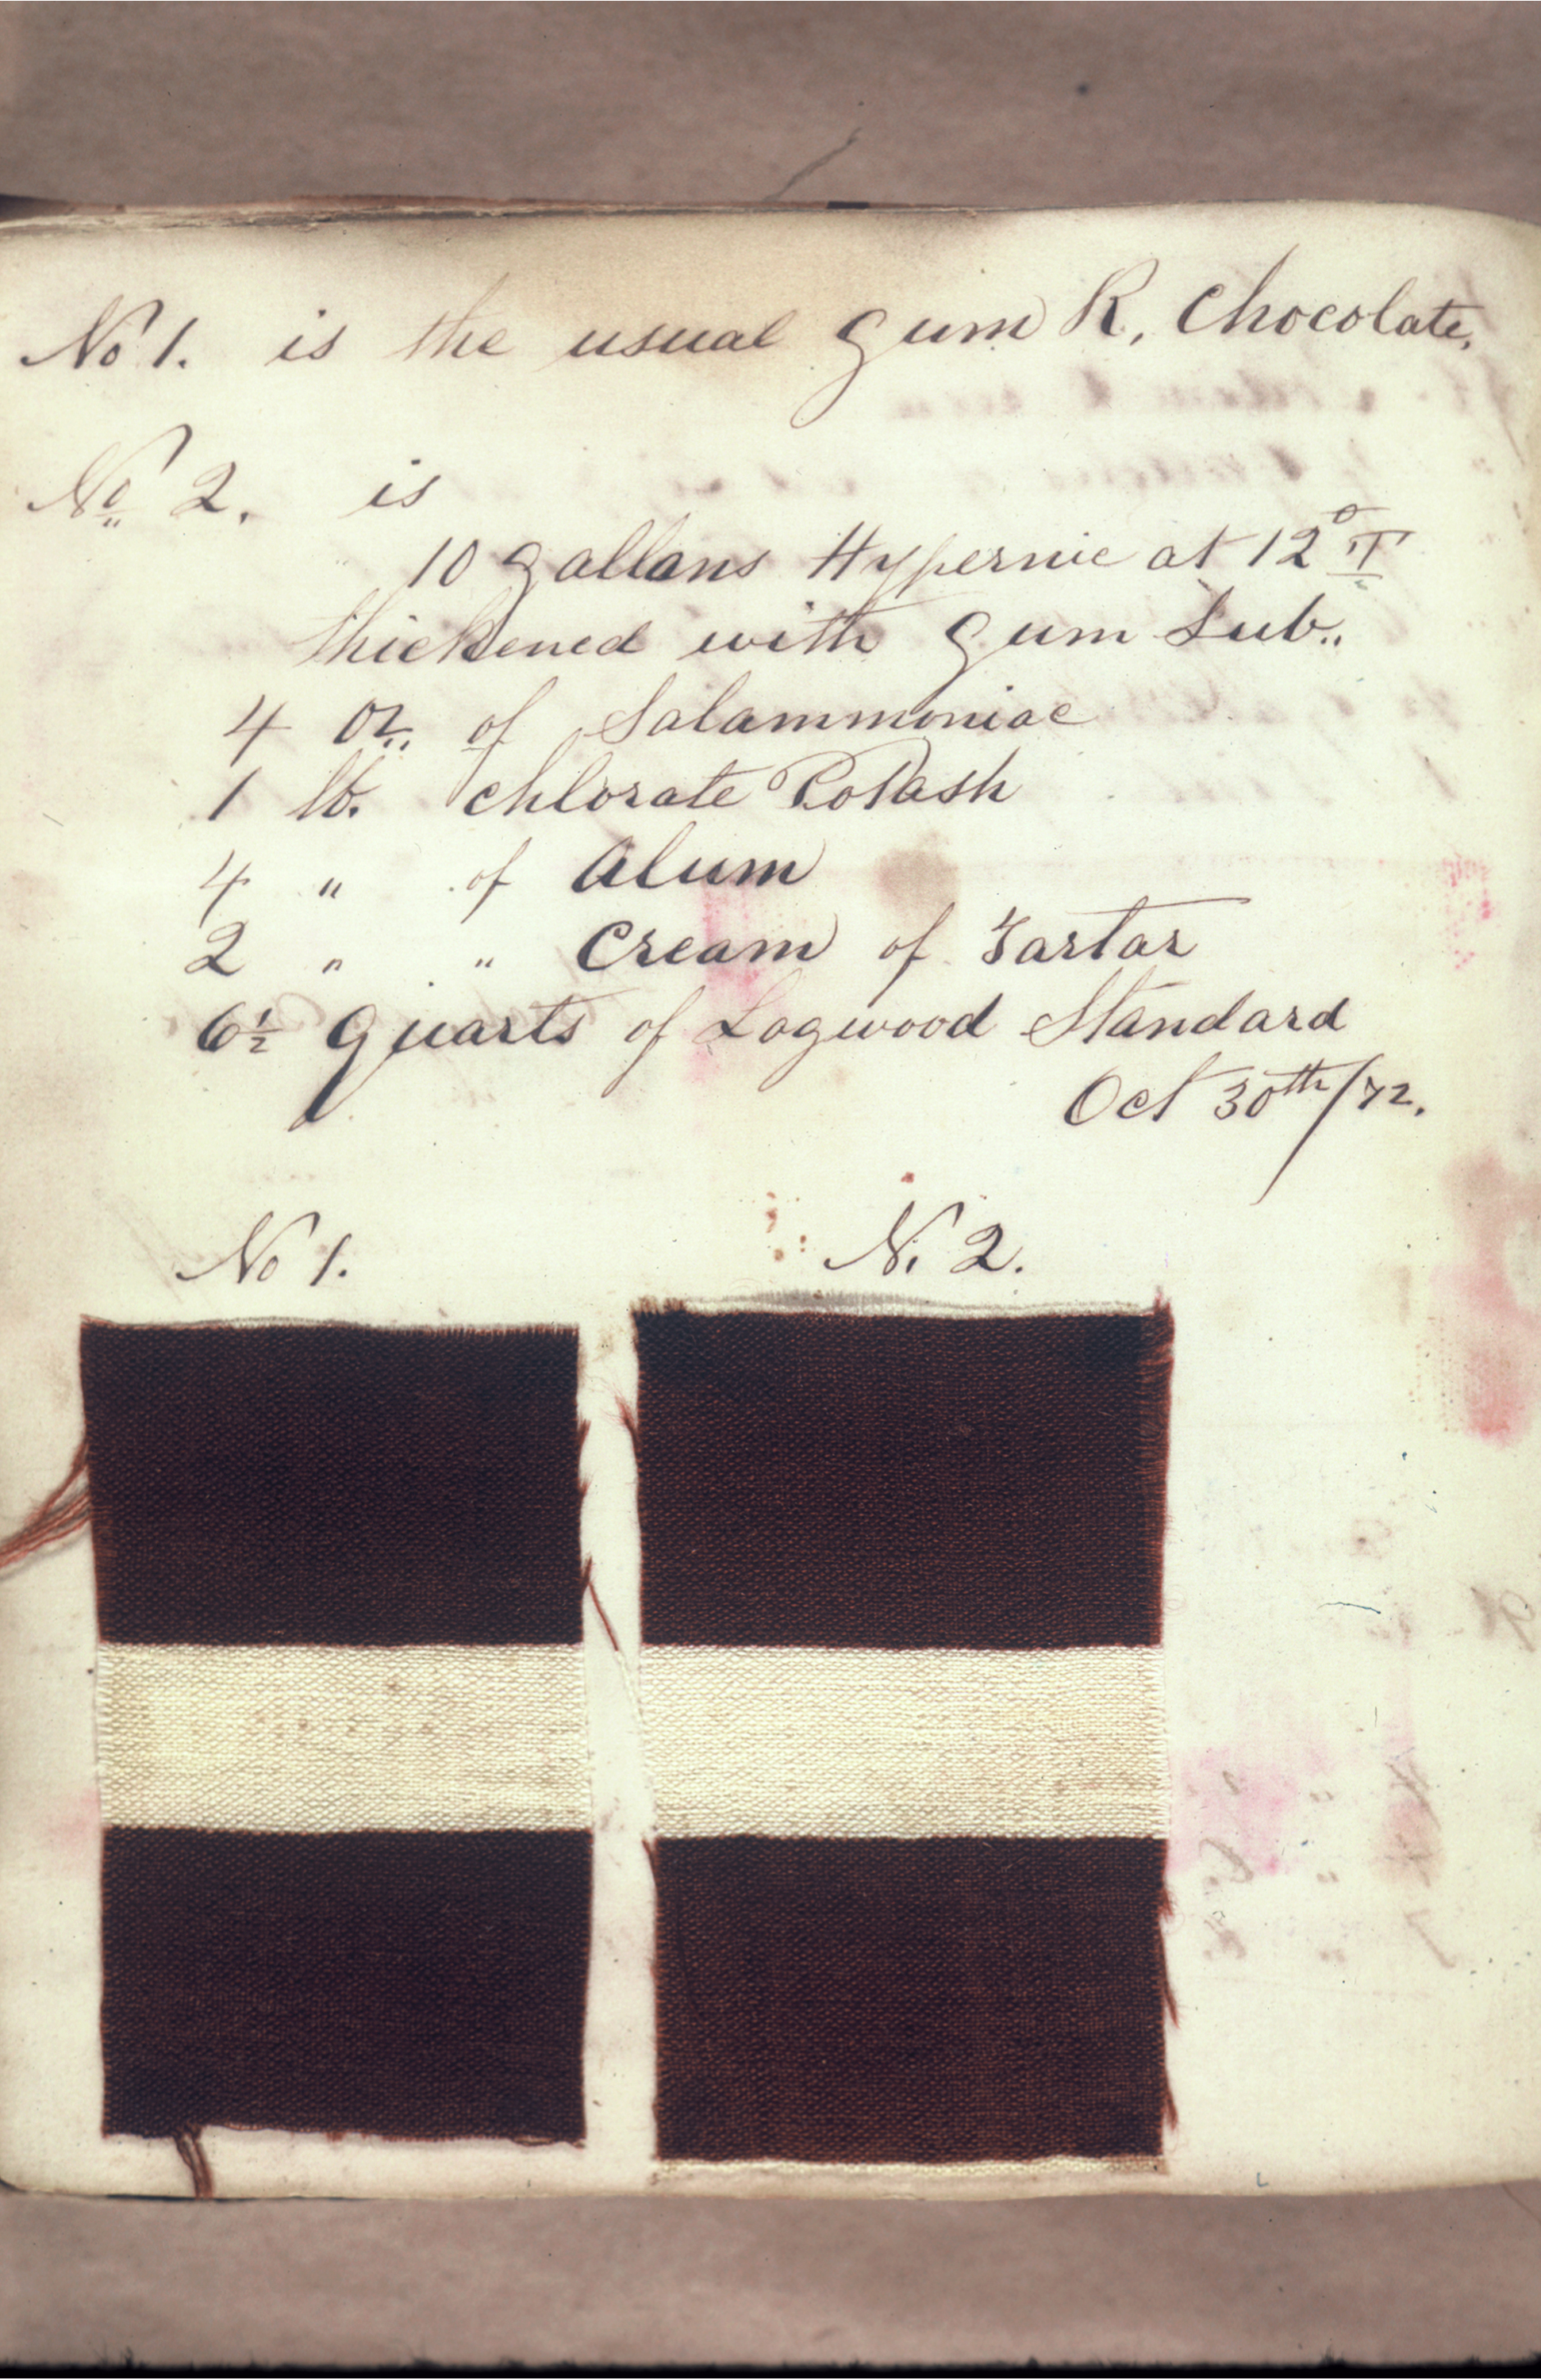 No 1. is the usual Gum R, Chocolate,
No 2. is
10 Gallons Hypernic at 12° T
thickened with Gum Sub..
4 oz. of Salammoniac
1 lb. Chlorate Potash
4 " of Alum
2 " " Cream of Tartar
6½ Quarts of Logwood Standard
Oct 30th/72.
No 1. No 2.